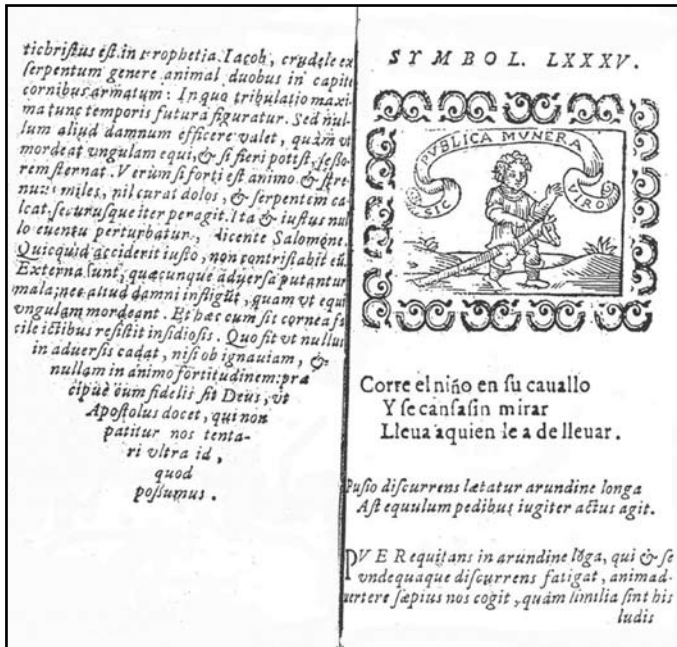 tichriſtus eſt.in prophetia Iacob, crudele ex
ſerpentum genere animal duobus in capite
cornibus armatum: In quo tribulatio maxi-
ma tunc temporis futura figuratur. Sed nul-
lum aliud damnum efficere valet, quàm vt
mordeat vngulam equi,& ſi fieri poteſt, ſeſſo-
rem ſternat. Verùm ſi forti eſt animo & ſtre
nuus miles, nil curat dolos, & ſerpentem cal
cat, ſecuruſque iter peragit. Ita & iuſtus nul
lo euentu perturbatur, dicente Salomone.
Quicquid acciderit iuſto, non contriſtabit eū.
Externa ſunt, quæcunque aduerſa putantur
mala; nec aliud damni infligūt, quam vt equi
vngulam mordeant. Et hæc cum ſit cornea fa
cile ictibus reſiſtit inſidioſis. Quo fit vt nullus
in aduerſis cadat, niſi ob ignauiam, &
nullam in animo fortitudinem: præ
cipuè cùm fidelis ſit Deus, vt
Apoſtolus docet, qui non
patitur nos tenta-
ri vltra id,
quod
poſſumus.
SYMBOL. LXXXV.
SIC PVBLICA MVNERA VIRO
Corre el niño en ſu cauallo
Y ſe canſaſin mirar
Lleua aquien le a de lleuar.
Puſio diſcurrens lætatur arundine longa
Aſt equulum pedibus iugiter actus agit.
PVER equitans in arundine lōga, qui & ſe
vndequaque diſcurrens fatigat, animad-
uertere ſæpius nos cogit, quàm ſimilia ſint his
ludis